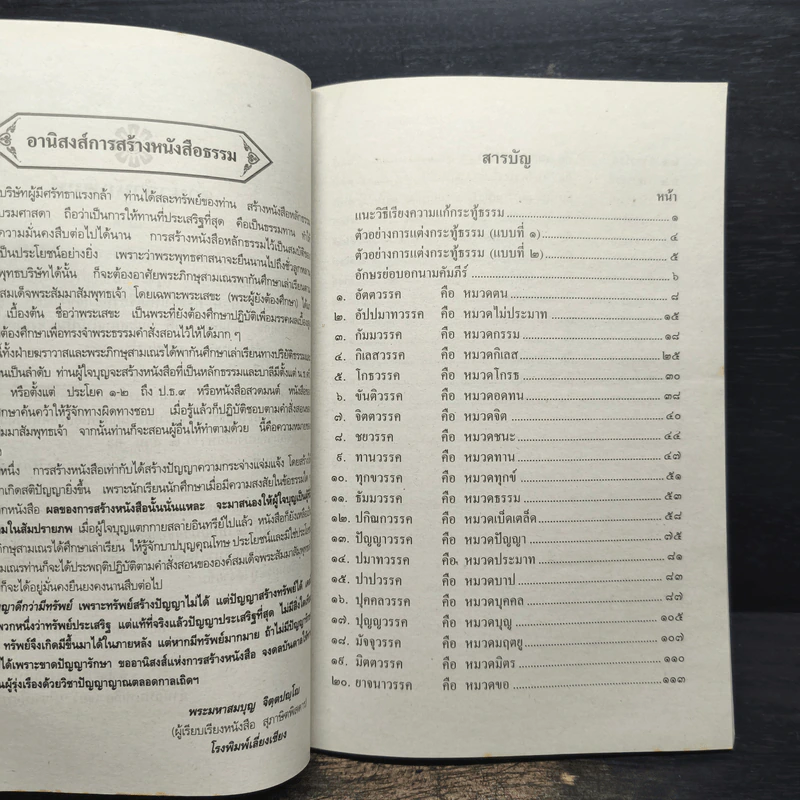 อานิสงส์การสร้างหนังสือธรรม
บริษัทผู้มีศรัทธาแรงกล้า ท่านได้สละทรัพย์ของท่าน สร้างหนังสือหลักธรรม
บรมศาสดา ถือว่าเป็นการให้ทานที่ประเสริฐที่สุด คือเป็นธรรมทาน
ความมั่นคงสืบต่อไปได้นาน การสร้างหนังสือหลักธรรมไว้เป็นสมบัติของ
เป็นประโยชน์อย่างยิ่ง เพราะว่าพระพุทธศาสนาจะยืนนานไปถึงชั่วลูกหลาน
พุทธบริษัทได้นั้น ก็จะต้องอาศัยพระภิกษุสามเณรพากันศึกษาเล่าเรียน
สมเด็จพระสัมมาสัมพุทธเจ้า โดยเฉพาะพระเสขะ (พระผู้ยังต้องศึกษา)
เบื้องต้น ชื่อว่าพระเสขะ เป็นพระที่ยังต้องศึกษาปฏิบัติเพื่อมรรคผล
ต้องศึกษาเพื่อทรงจำพระธรรมคำสั่งสอนไว้ให้ได้มาก ๆ
ทั้งฝ่ายฆราวาสและพระภิกษุสามเณรได้พากันศึกษาเล่าเรียนทางปริยัติธรรม
เป็นลำดับ ท่านผู้ใจบุญจะสร้างหนังสือที่เป็นหลักธรรมและบาลีมีตั้งแต่
หรือตั้งแต่ ประโยค ๑-๒ ถึง ป.ธ.๙ หรือหนังสือสวดมนต์
ศึกษาค้นคว้าให้รู้จักทางผิดทางชอบ เมื่อรู้แล้วก็ปฏิบัติชอบตามคำสั่งสอน
มาสัมพุทธเจ้า จากนั้นท่านก็จะสอนผู้อื่นให้ทำตามด้วย นี้คือความหมาย
หนึ่ง การสร้างหนังสือเท่ากับได้สร้างปัญญาความกระจ่างแจ่มแจ้ง
เกิดสติปัญญายิ่งขึ้น เพราะนักเรียนนักศึกษาเมื่อมีความสงสัยในข้อธรรมใด
หนังสือ ผลของการสร้างหนังสือนั้นนั่นแหละ จะมาสนองให้ผู้ใจบุญเป็น
ในสัมปรายภพ เมื่อผู้ใจบุญแตกกายสลายอินทรีย์ไปแล้ว หนังสือก็ยัง
ภิกษุสามเณรได้ศึกษาเล่าเรียน ให้รู้จักบาปบุญคุณโทษ ประโยชน์และมิใช่
เณรท่านก็จะได้ประพฤติปฏิบัติตามคำสั่งสอนขององค์สมเด็จพระสัมมาสัมพุทธ
ก็จะได้อยู่มั่นคงยืนยงคงนานสืบต่อไป
ดีกว่ามีทรัพย์ เพราะทรัพย์สร้างปัญญาไม่ได้ แต่ปัญญาสร้างทรัพย์ได้
พวกหนึ่งว่าทรัพย์ประเสริฐ แต่แท้ที่จริงแล้วปัญญาประเสริฐที่สุด
ทรัพย์จึงเกิดมีขึ้นมาได้ในภายหลัง แต่หากมีทรัพย์มากมาย ถ้าไม่มีปัญญา
ได้เพราะขาดปัญญารักษา ขออานิสงส์แห่งการสร้างหนังสือ จงดลบันดาล
ผู้รุ่งเรืองด้วยวิชาปัญญาญาณตลอดกาลเถิดฯ
พระมหาสมบุญ จิตฺตปญฺโญ
(ผู้เรียบเรียงหนังสือ สุภาษิต
โรงพิมพ์เลี่ยงเชียง
สารบัญ
หน้า
แนะวิธีเรียงความแก้กระทู้ธรรม ๑
ตัวอย่างการแต่งกระทู้ธรรม (แบบที่ ๑) ๔
ตัวอย่างการแต่งกระทู้ธรรม (แบบที่ ๒) ๕
อักษรย่อบอกนามคัมภีร์ ๖
๑. อัตตวรรค คือ หมวดตน ๘
๒. อัปปมาทวรรค คือ หมวดไม่ประมาท ๑๕
๓. กัมมวรรค คือ หมวดกรรม ๑๘
๔. กิเลสวรรค คือ หมวดกิเลส ๒๕
๕. โกธวรรค คือ หมวดโกรธ ๓๐
๖. ขันติวรรค คือ หมวดอดทน ๓๘
๗. จิตตวรรค คือ หมวดจิต ๔๐
๘. ชยวรรค คือ หมวดชนะ ๔๔
๙. ทานวรรค คือ หมวดทาน ๔๗
๑๐. ทุกขวรรค คือ หมวดทุกข์ ๕๑
๑๑. ธัมมวรรค คือ หมวดธรรม ๕๓
๑๒. ปกิณกวรรค คือ หมวดเบ็ดเตล็ด ๕๘
๑๓. ปัญญาวรรค คือ หมวดปัญญา ๗๕
๑๔. ปมาทวรรค คือ หมวดประมาท ๘๑
๑๕. ปาปวรรค คือ หมวดบาป ๘๓
๑๖. ปุคคลวรรค คือ หมวดบุคคล ๘๗
๑๗. ปุญญวรรค คือ หมวดบุญ ๑๐๕
๑๘. มัจจุวรรค คือ หมวดมฤตยู ๑๐๗
๑๙. มิตตวรรค คือ หมวดมิตร ๑๑๐
๒๐. ยาจนาวรรค คือ หมวดขอ ๑๑๓